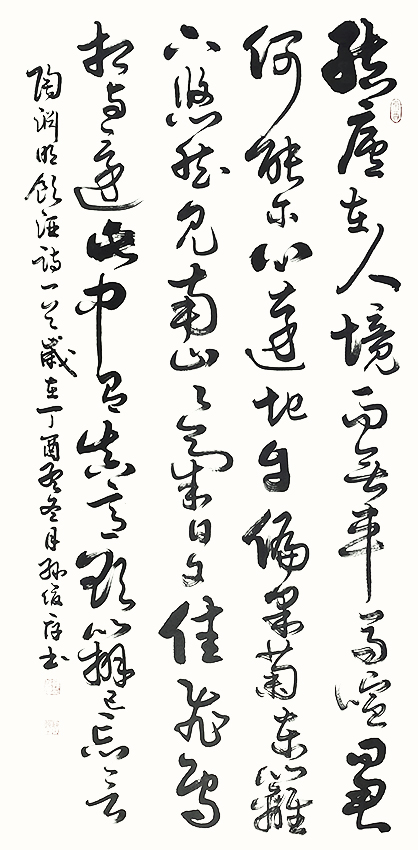 結廬在人境而無車馬喧問君
何能爾心遠地自偏采菊東籬
下悠然見南山々氣日夕佳飛鳥
相與還此中有真意欲辨已忘言
陶淵明飲酒詩一首歲在丁酉年冬月孫俊書